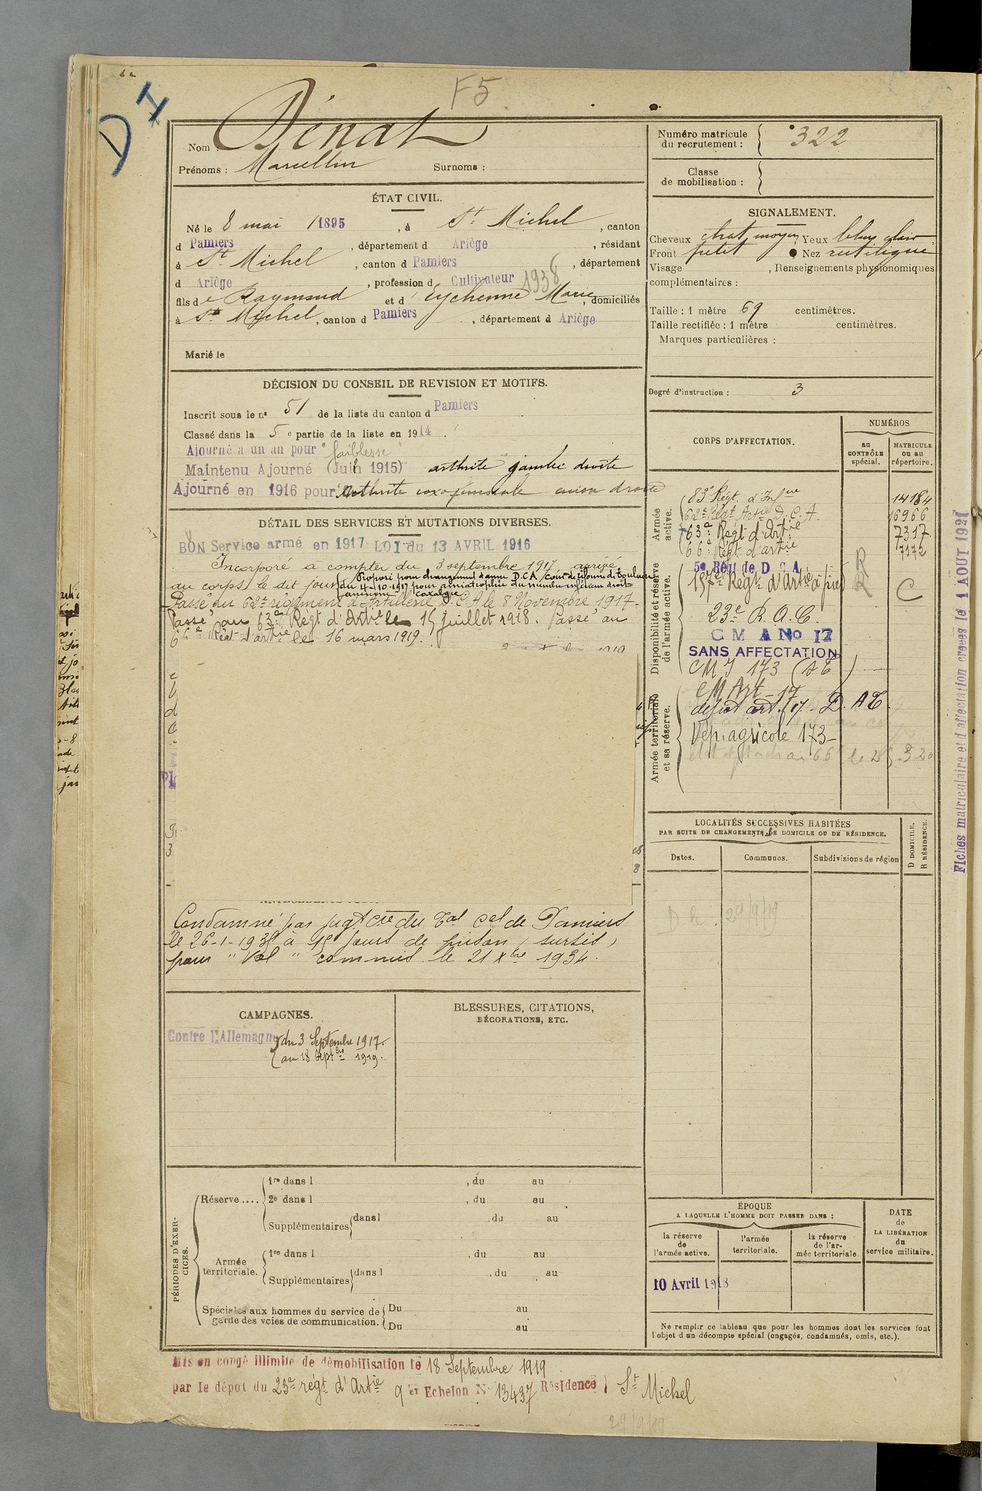 D I
F5
Nom : Dénat
Prénoms : Marcellin Surnoms :
Numéro matricule du recrutement : 322
Classe de mobilisation :
ÉTAT CIVIL.
Né le 8 mai 1895, à St Michel, canton
d Pamiers, département d Ariège, résidant
à St Michel, canton d Pamiers, département
d Ariège, profession d Cultivateur 1938
fils de Raymond et d' Eychenne Marie, domiciliés
à St Michel, canton d Pamiers, département d Ariège
Marié le
SIGNALEMENT.
Cheveux chat. moyen, Yeux bleus clair
Front petit Nez rectiligne
Visage , Renseignements physionomiques
complémentaires :
Taille : 1 mètre 69 centimètres.
Taille rectifiée : 1 mètre centimètres.
Marques particulières :
Degré d'instruction : 3
DÉCISION DU CONSEIL DE REVISION ET MOTIFS.
Inscrit sous le nº 51 de la liste du canton d Pamiers
Classé dans la 5e partie de la liste en 1914.
Ajourné a un an pour "faiblesse"
Maintenu Ajourné (Juin 1915) arthrite jambe droite
Ajourné en 1916 pour Arthrite coxo fémorale droite
DÉTAIL DES SERVICES ET MUTATIONS DIVERSES.
BON Service armé en 1917 LOI du 13 AVRIL 1916
Incorporé à compter du 3 septembre 1917. arrivé
au corps le dit jour
Proposé pour changement d'arme D.C.A.
du 4-10-1917 pour amiotrophie du membre inférieur droit
Passé au 62e régiment d'Artillerie D.C.A le 8 Novembre 1917.
Passé au 63e Régt d'Artie le 15 juillet 1918. Passé au
66e Régt d'artie le 16 mars 1919.
Condamné par jugt cre du Tal Cel de Pamiers
le 26-1-1935 à 15 jours de prison, sursis,
pour "Vol" commis le 21 Xbre 1934.
CORPS D'AFFECTATION.
NUMÉROS
AU CONTRÔLE spécial.
MATRICULE OU AU répertoire.
Armée active.
83e Régt d'Infie 14184
62e Régt Artie D.C.A. 16966
63e Régt d'Artie 7317
66e Régt d'artie 7172
Disponibilité et réserve de l'armée active.
5e Régt de D.C.A.
187e Régt d'Artie à pied
R
C
23e R.A.C.
CMA No 17
SANS AFFECTATION
CMI 173
Armée territoriale et sa réserve.
CM Art - 17
dépôt art. 17
Dép. agricole 173
LOCALITÉS SUCCESSIVES HABITÉES
PAR SUITE DE CHANGEMENTS DE DOMICILE OU DE RÉSIDENCE.
D DOMICILE. R RÉSIDENCE.
Dates. Communes. Subdivisions de région
29/9/19
CAMPAGNES.
Contre l'Allemagne du 3 Septembre 1917
au 18 Septbre 1919.
BLESSURES, CITATIONS,
DÉCORATIONS, ETC.
PÉRIODES D'EXERCICES.
Réserve....
1re dans l , du au
2e dans l , du au
Supplémentaires dans l , du au
Armée territoriale.
1re dans l , du au
Supplémentaires dans l , du au
Spéciales aux hommes du service de garde des voies de communication.
Du au
Du au
ÉPOQUE
A LAQUELLE L'HOMME DOIT PASSER DANS :
la réserve de l'armée active.
l'armée territoriale.
la réserve de l'armée territoriale.
DATE de LA LIBÉRATION du service militaire.
10 Avril 1918
Ne remplir ce tableau que pour les hommes dont les services font
l'objet d'un décompte spécial (engagés, condamnés, omis, etc.).
Mis en congé illimité de démobilisation le 18 Septembre 1919
par le dépôt du 23e régt d'Artie 9 e Echelon No 13437 Résidence St Michel
29/9/19